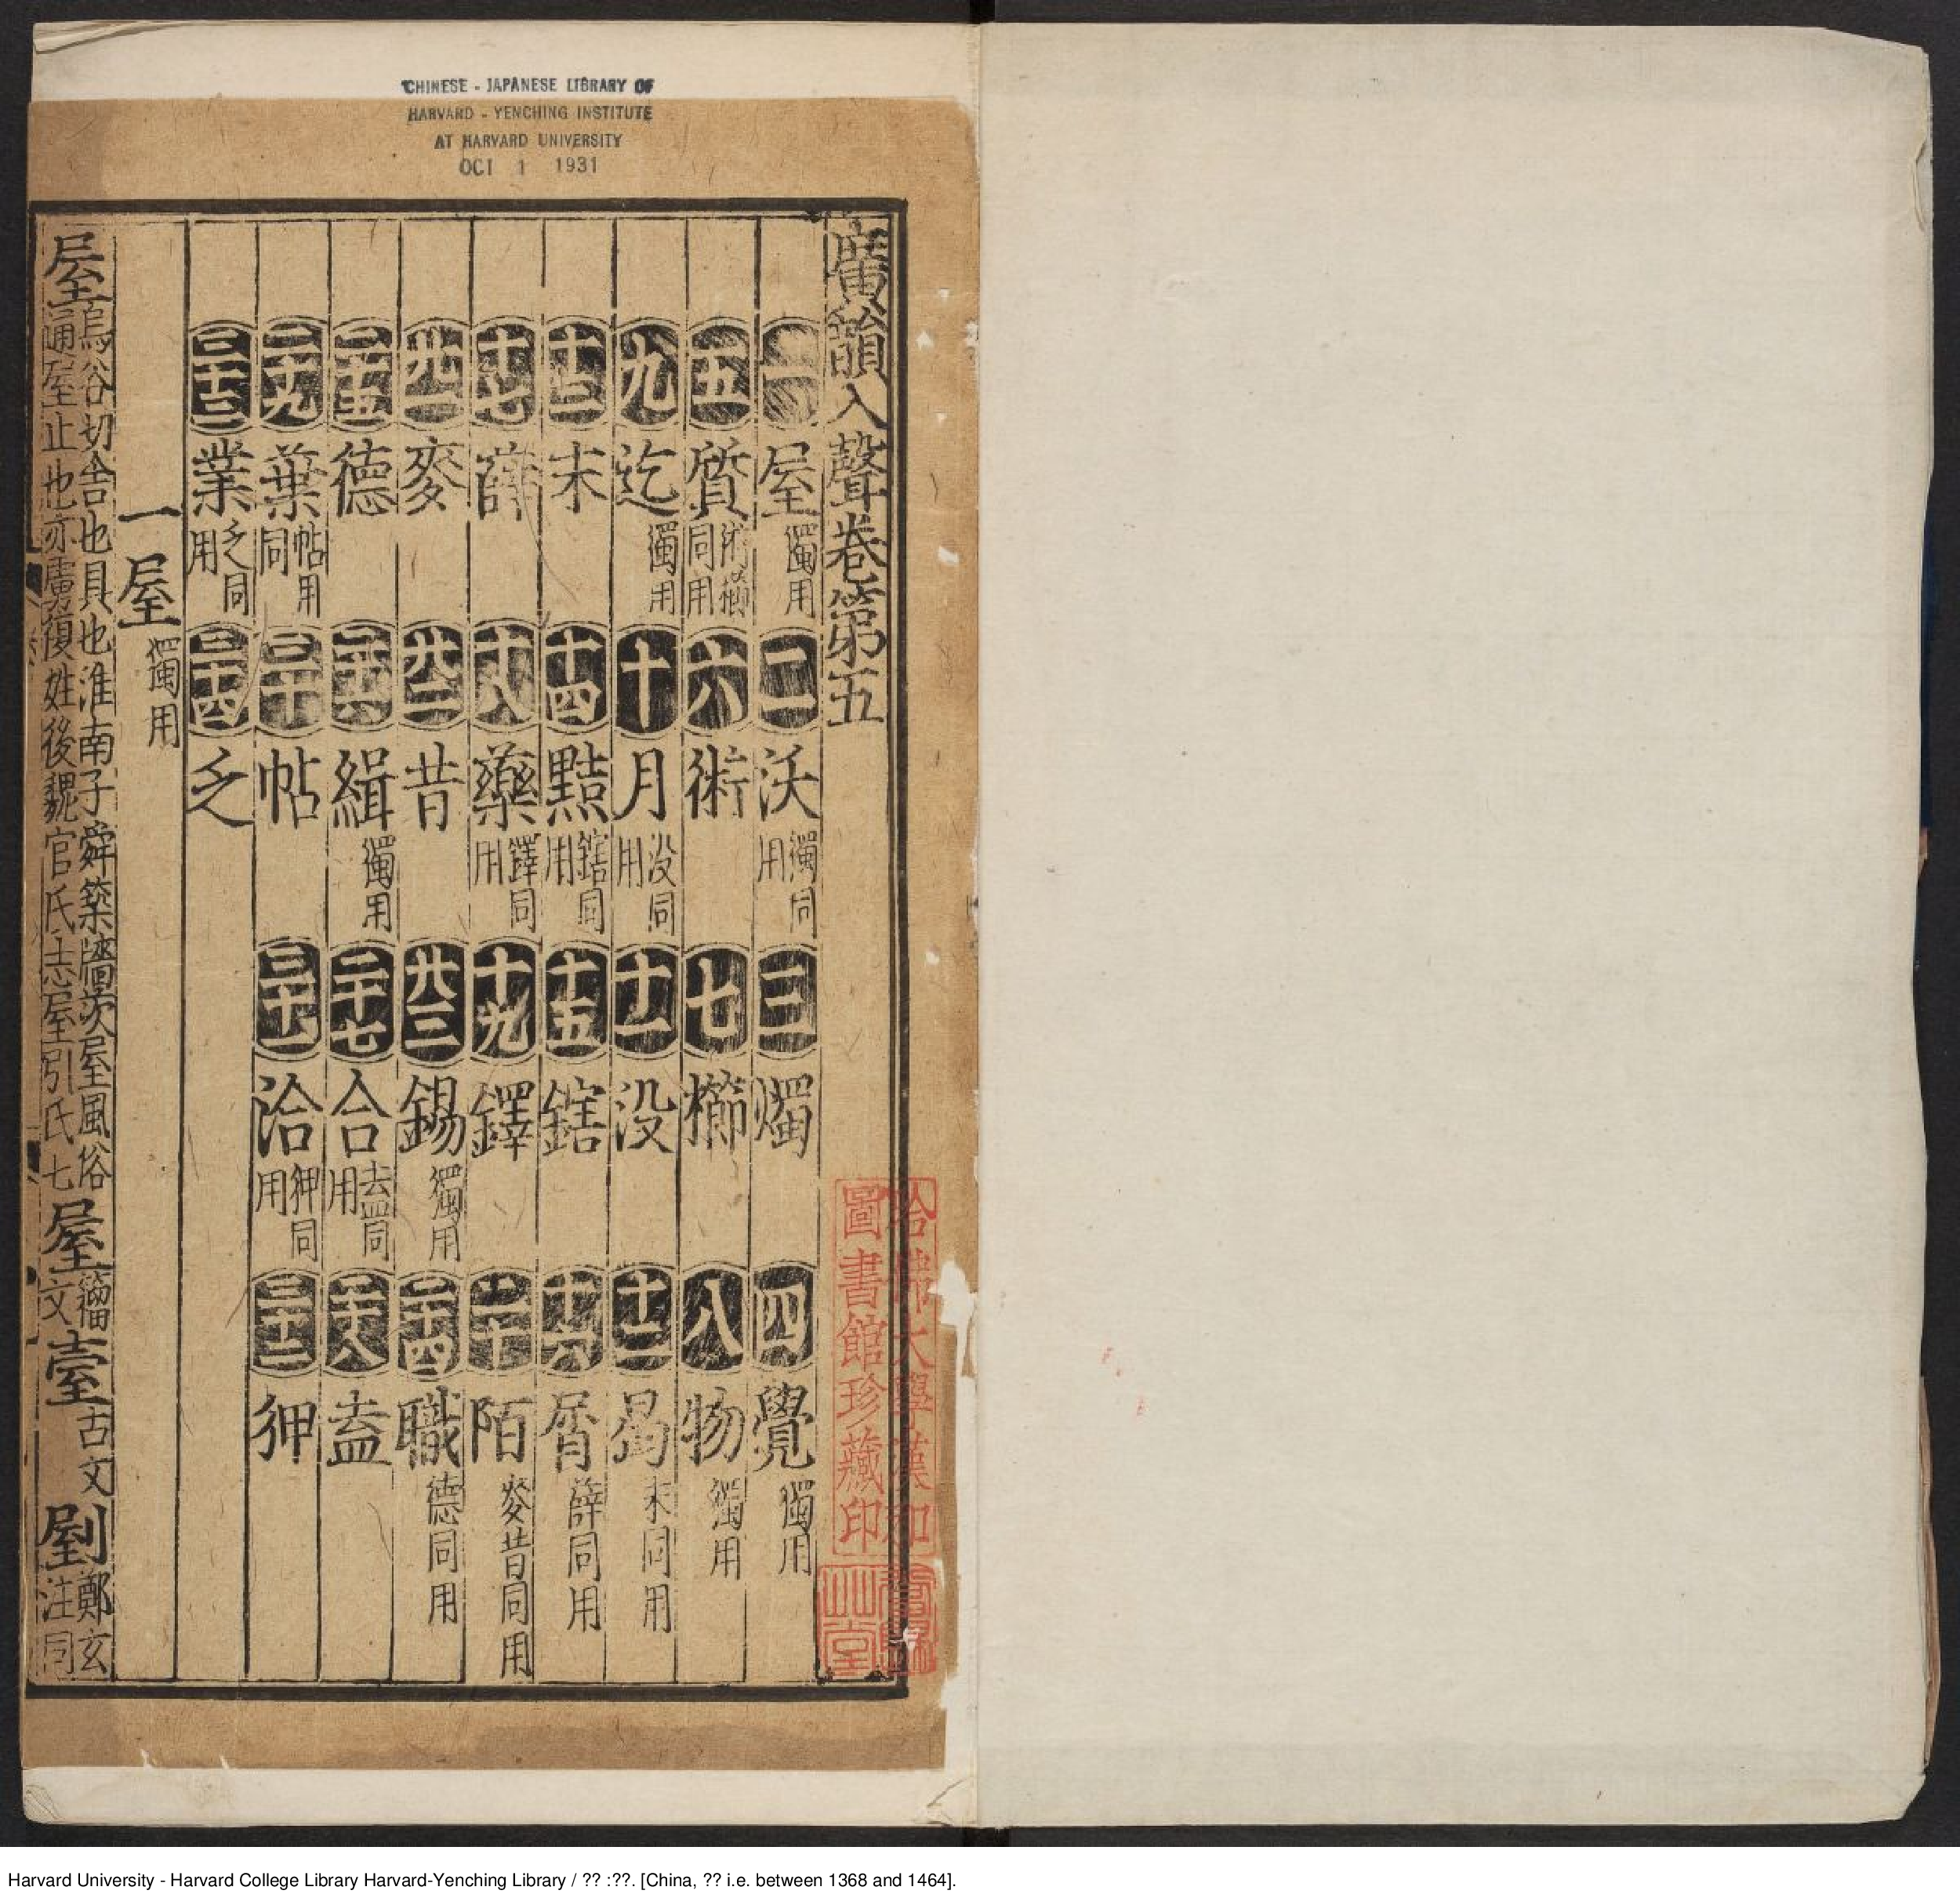 CHINESE - JAPANESE LIBRARY OF
HARVARD - YENCHING INSTITUTE
AT HARVARD UNIVERSITY
OCT 1 1931
廣韻入聲卷第五
一屋獨用 二沃獨同用 三燭 四覺獨用
五質術櫛同用 六術 七櫛 八物獨用
九迄獨用 十月没同用 十一没 十二曷末同用
十三末 十四黠鎋同用 十五鎋 十六屑薛同用
十七薛 十八藥鐸同用 十九鐸 二十陌麥昔同用
廿一麥 廿二昔 廿三錫獨用 二十四職德同用
二十五德 二十六緝獨用 二十七合盍同用 二十八盍
二十九葉帖用同 三十帖 三十一洽狎同用 三十二狎
三十三業乏同用 三十四乏
一屋獨用
屋烏谷切舍也具也淮南子舜築墻茨屋風俗通屋止也亦虜複姓後魏官氏志屋引氏七 屋籀文 臺古文 剭鄭玄注同
哈佛大學漢和圖書館珍藏印
Harvard University - Harvard College Library Harvard-Yenching Library / ?? :??. [China, ?? i.e. between 1368 and 1464].